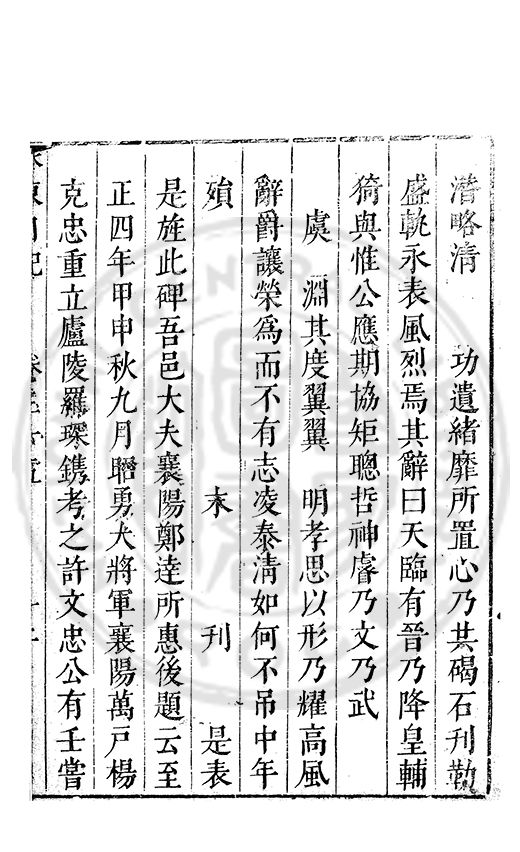 潛略清　　功遺緒靡所置心乃共碣石刊勒
盛軌永表風烈焉其辭曰天臨有晉乃降皇輔
猗與惟公應期協矩聰哲神睿乃文乃武
虞　淵其度翼翼　明孝思以形乃耀高風
辭爵讓榮為而不有志凌泰淸如何不吊中年
殞　　　　　　末　　刊　　是表
是旌此碑吾邑大夫襄陽鄭逹所惠後題云至
正四年甲申秋九月聦勇大將軍襄陽萬戸楊
克忠重立廬陵羅琛鐫考之許文忠公有壬嘗
卷